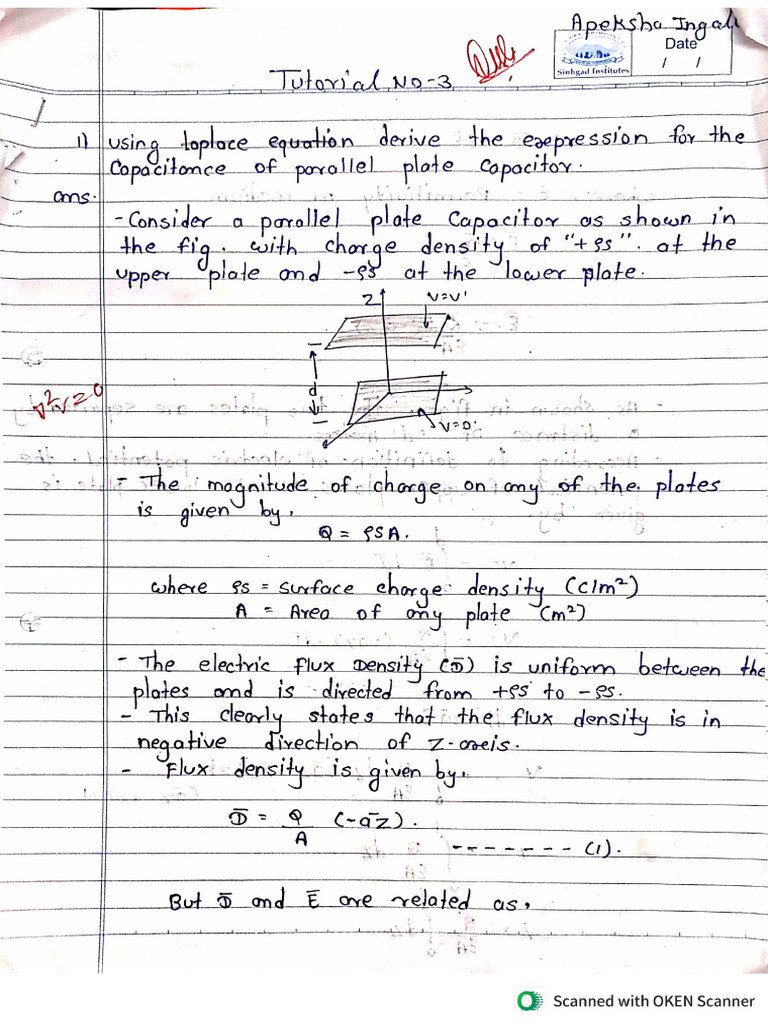 Apeksha Ingali
Sinhgad Institutes
Date
/ /
Tutorial No-3
1) using laplace equation derive the expression for the
Capacitance of parallel plate capacitor.
ans.
- Consider a parallel plate Capacitor as shown in
the fig. with charge density of "+ρs". at the
upper plate and -ρs at the lower plate.
Z
V=V'
d
V=0
∇²V=0
- The magnitude of charge on any of the plates
is given by,
Q = ρSA.
where ρs = surface charge density (c/m²)
A = Area of any plate (m²)
- The electric flux Density (D̄) is uniform between the
plates and is directed from +ρs to -ρs.
- This clearly states that the flux density is in
negative direction of Z-axis.
- Flux density is given by,
D̄ = Q/A (-āz).
------- (1).
But D̄ and Ē are related as,
Scanned with OKEN Scanner